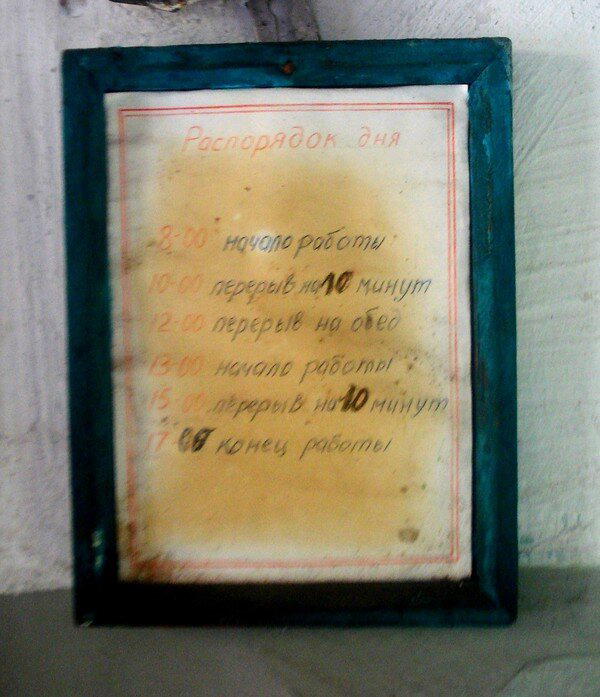 Распорядок дня
8-00 начало работы
10-00 перерыв на 10 минут
12-00 перерыв на обед
13-00 начало работы
15-00 перерыв на 10 минут
17-00 конец работы